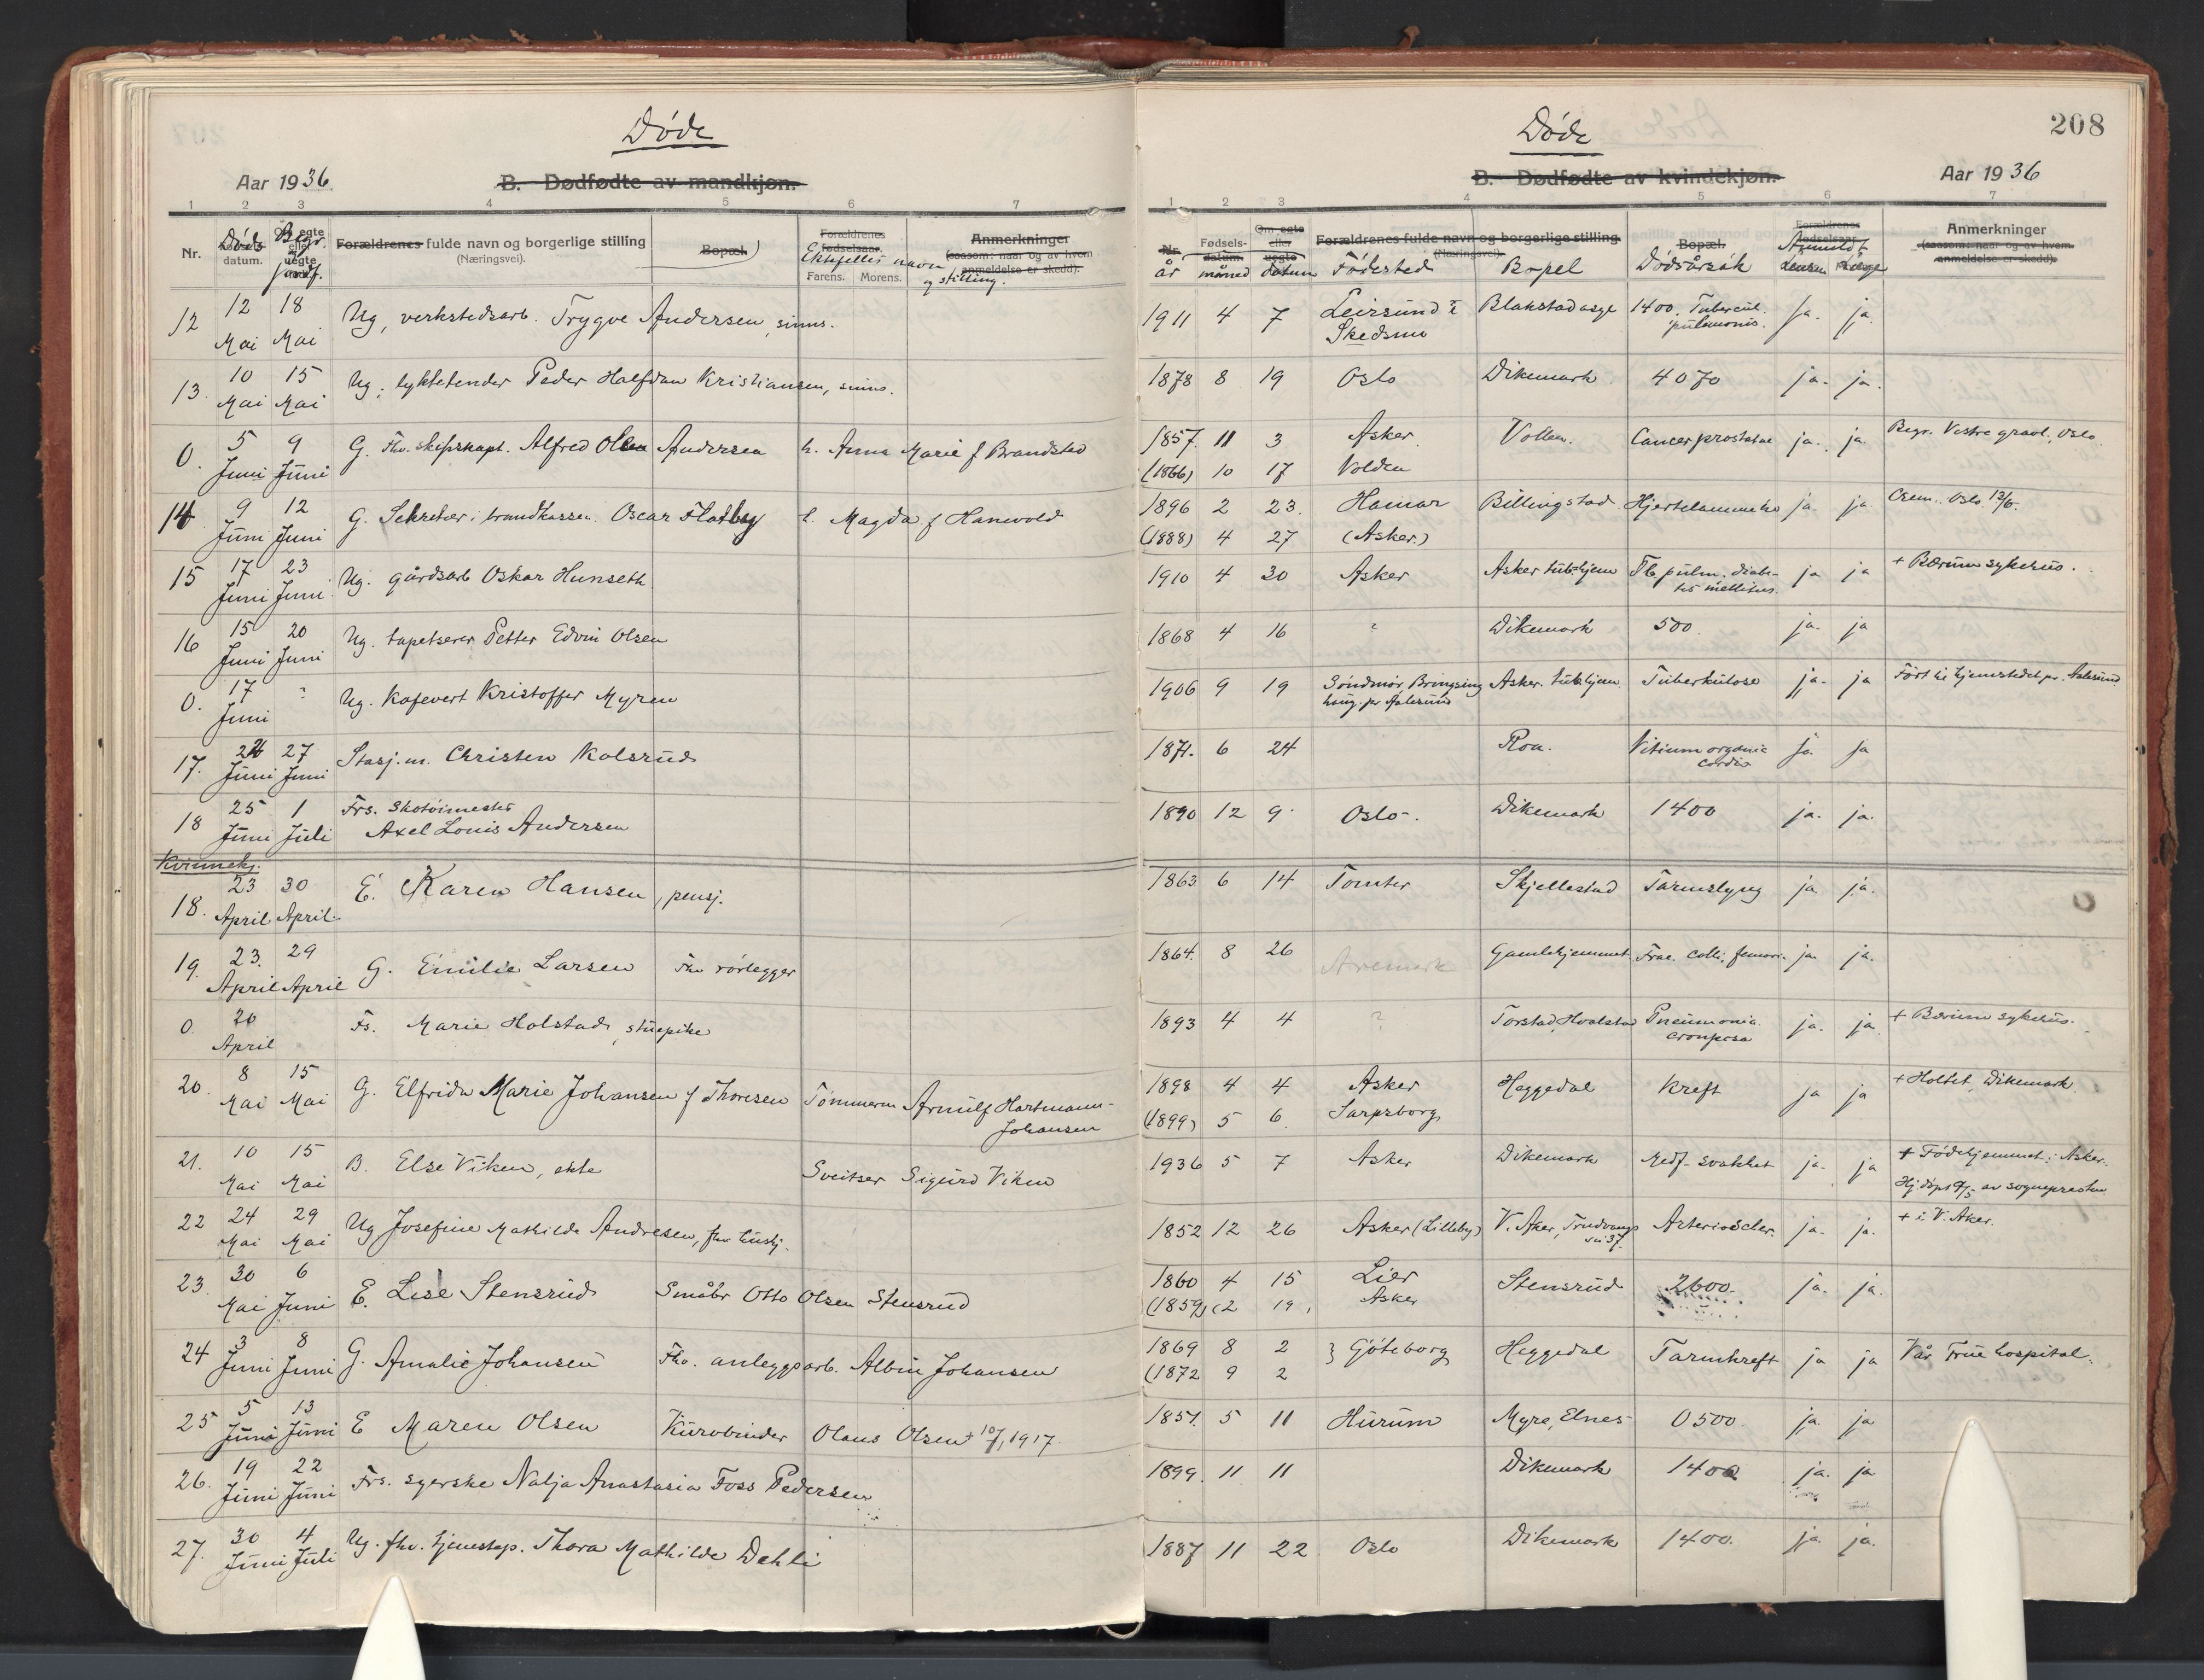 Døde
Aar 1936
B. Dødfødte av mandkjøn.
1 2 3 4 5 6 7
Nr. Døds datum. Begr. Forældrenes fulde navn og borgerlige stilling (Næringsvei). Bopæl. Forældrenes fødselsaar. Farens. Morens. Ektefelles navn og stilling. Anmerkninger (saasom: naar og av hvem anmeldelse er skedd).
12 12 Mai 18 Mai Ug, verkstedsarb. Trygve Andersen, sinns.
13. 10 Mai 15 Mai Ug, lyktetender Peder Halfdan Kristiansen, sinns.
0. 5 Juni 9 Juni G. Fhv. skipskapt. Alfred Olsen Andersen h. Anna Marie f Brandsted
14 9 Juni 12 Juni G. Sekretær i brandkassen. Oscar Flatby h. Magda f Hanevold
15 17 Juni 23 Juni Ug. gårdsarb Oskar Hunseth
16 15 Juni 20 Juni Ug. tapetserer Petter Edvin Olsen
0. 17 Juni ? Ug. Kafevert Kristoffer Myren
17. Juni 27 Juni Stasj.m. Christen Kolsrud
18 25 Juni 1 Juli Frs. Skotøimester
Axel Louis Andersen
Kvinnekj.
18. 23 April 30 April E. Karen Hansen, pensj.
19. 23. April 29 April G. Emilie Larsen Fhv rørlegger
0. 20 April Fs. Marie Holstad, stuepike
20. 8 Mai 15 Mai G. Elfrida Marie Johansen f Thoresen Tømmerm Arnulf Hartmann-
Johansen
21. 10 Mai 15 Mai B. Else Viken, ekte Sveitser Sigurd Viken
22 24 Mai 29 Mai Ug Josefine Mathilde Andresen, fhv hush.
23. 30 Mai 6 Juni E. Lise Stensrud Småbr Otto Olsen Stensrud
24 3 Juni 8 Juni G. Amalie Johansen Fhv. anleggsarb. Albin Johansen
25 5 Juni 13 Juni E Maren Olsen Kurvbinder Olaus Olsen + 10/7, 1917.
26. 19 Juni 22 Juni Frs. syerske Nalja Anastasia Foss Pedersen
27. 30 Juni 4 Juli Ug. fhv. tjenestep. Thora Mathilde Dehli
Døde
208
B. Dødfødte av kvindekjøn.
Aar 1936
1 2 3 4 5 6 7
Nr. år Fødsels-datum. måned Om egte eller uegte datum Forældrenes fulde navn og borgerlige stilling. (Næringsvei). Fødested Bopel Bopæl. Dødsårsak Forældrenes fødselsaar Anmeldt Lensm Læge Anmerkninger (saasom: naar og av hvem anmeldelse er skedd).
1911 4 7 Leirsund i Blakstad asyl 1400. Tubercul. ja. ja.
Skedsmo pulmonis.
1878 8 19 Oslo Dikemark 4070 ja. ja.
1857. 11 3 Asker Vollen. Cancer prostatae ja. ja. Begr. Vestre gravl., Oslo.
(1866) 10 17 Volden
1896 2 23. Hamar Billingstad. Hjertelammelse ja. ja. Crem. Oslo 13/6.
(1888) 4 27 (Asker.)
1910 4 30 Asker Asker tub.hjem Tb. pulm. diabe- ja ja + Bærum sykehus.
tes mellitus.
1868 4 16 ? Dikemark 500. ja. ja
1906 9 19 Søndmør Bringsing Asker tub.hjem Tuberkulose ja. ja Ført til hjemstedet pr. Aalesund
haug. pr Aalesund
1871. 6 24 Roa. Vitium organic ja. ja
cordis
1890 12 9. Oslo. Dikemark 1400 ja. ja.
1863 6 14 Tomter Skjellestad Tarmslyng ja ja.
1864. 8 26 Aremark Gamlehjemmet Frac. colli, femori. ja. ja.
1893 4 4 ? Torstad, Hvalstad Pneumonia ja. ja. + Bærum sykehus.
crouposa
1898 4 4 Asker Heggedal Kreft ja ja + Holtet, Dikemark.
(1899) 5 6. Sarpsborg
1936 5 7 Asker Dikemark Medf. svakhet ja. ja + Fødehjemmet i Asker.
Hj.døpt 9/5 av sognepresten
1852 12 26 Asker (Lilleby) V. Aker, Trudvangs Arterioscler. ja. ja. + i V. Aker.
vei 37.
1860 4 15 Lier Stensrud 2600. ja. ja.
(1859) 12 19, Asker
1869 8 2 } Göteborg Heggedal Tarmkreft ja ja Vår Frue hospital.
(1872 9 2
1851. 5 11 Hurum Myra, Elnes 0500. ja ja
1899. 11 11 Dikemark 1400 ja. ja
1887 11 22 Oslo Dikemark 1400. ja ja.